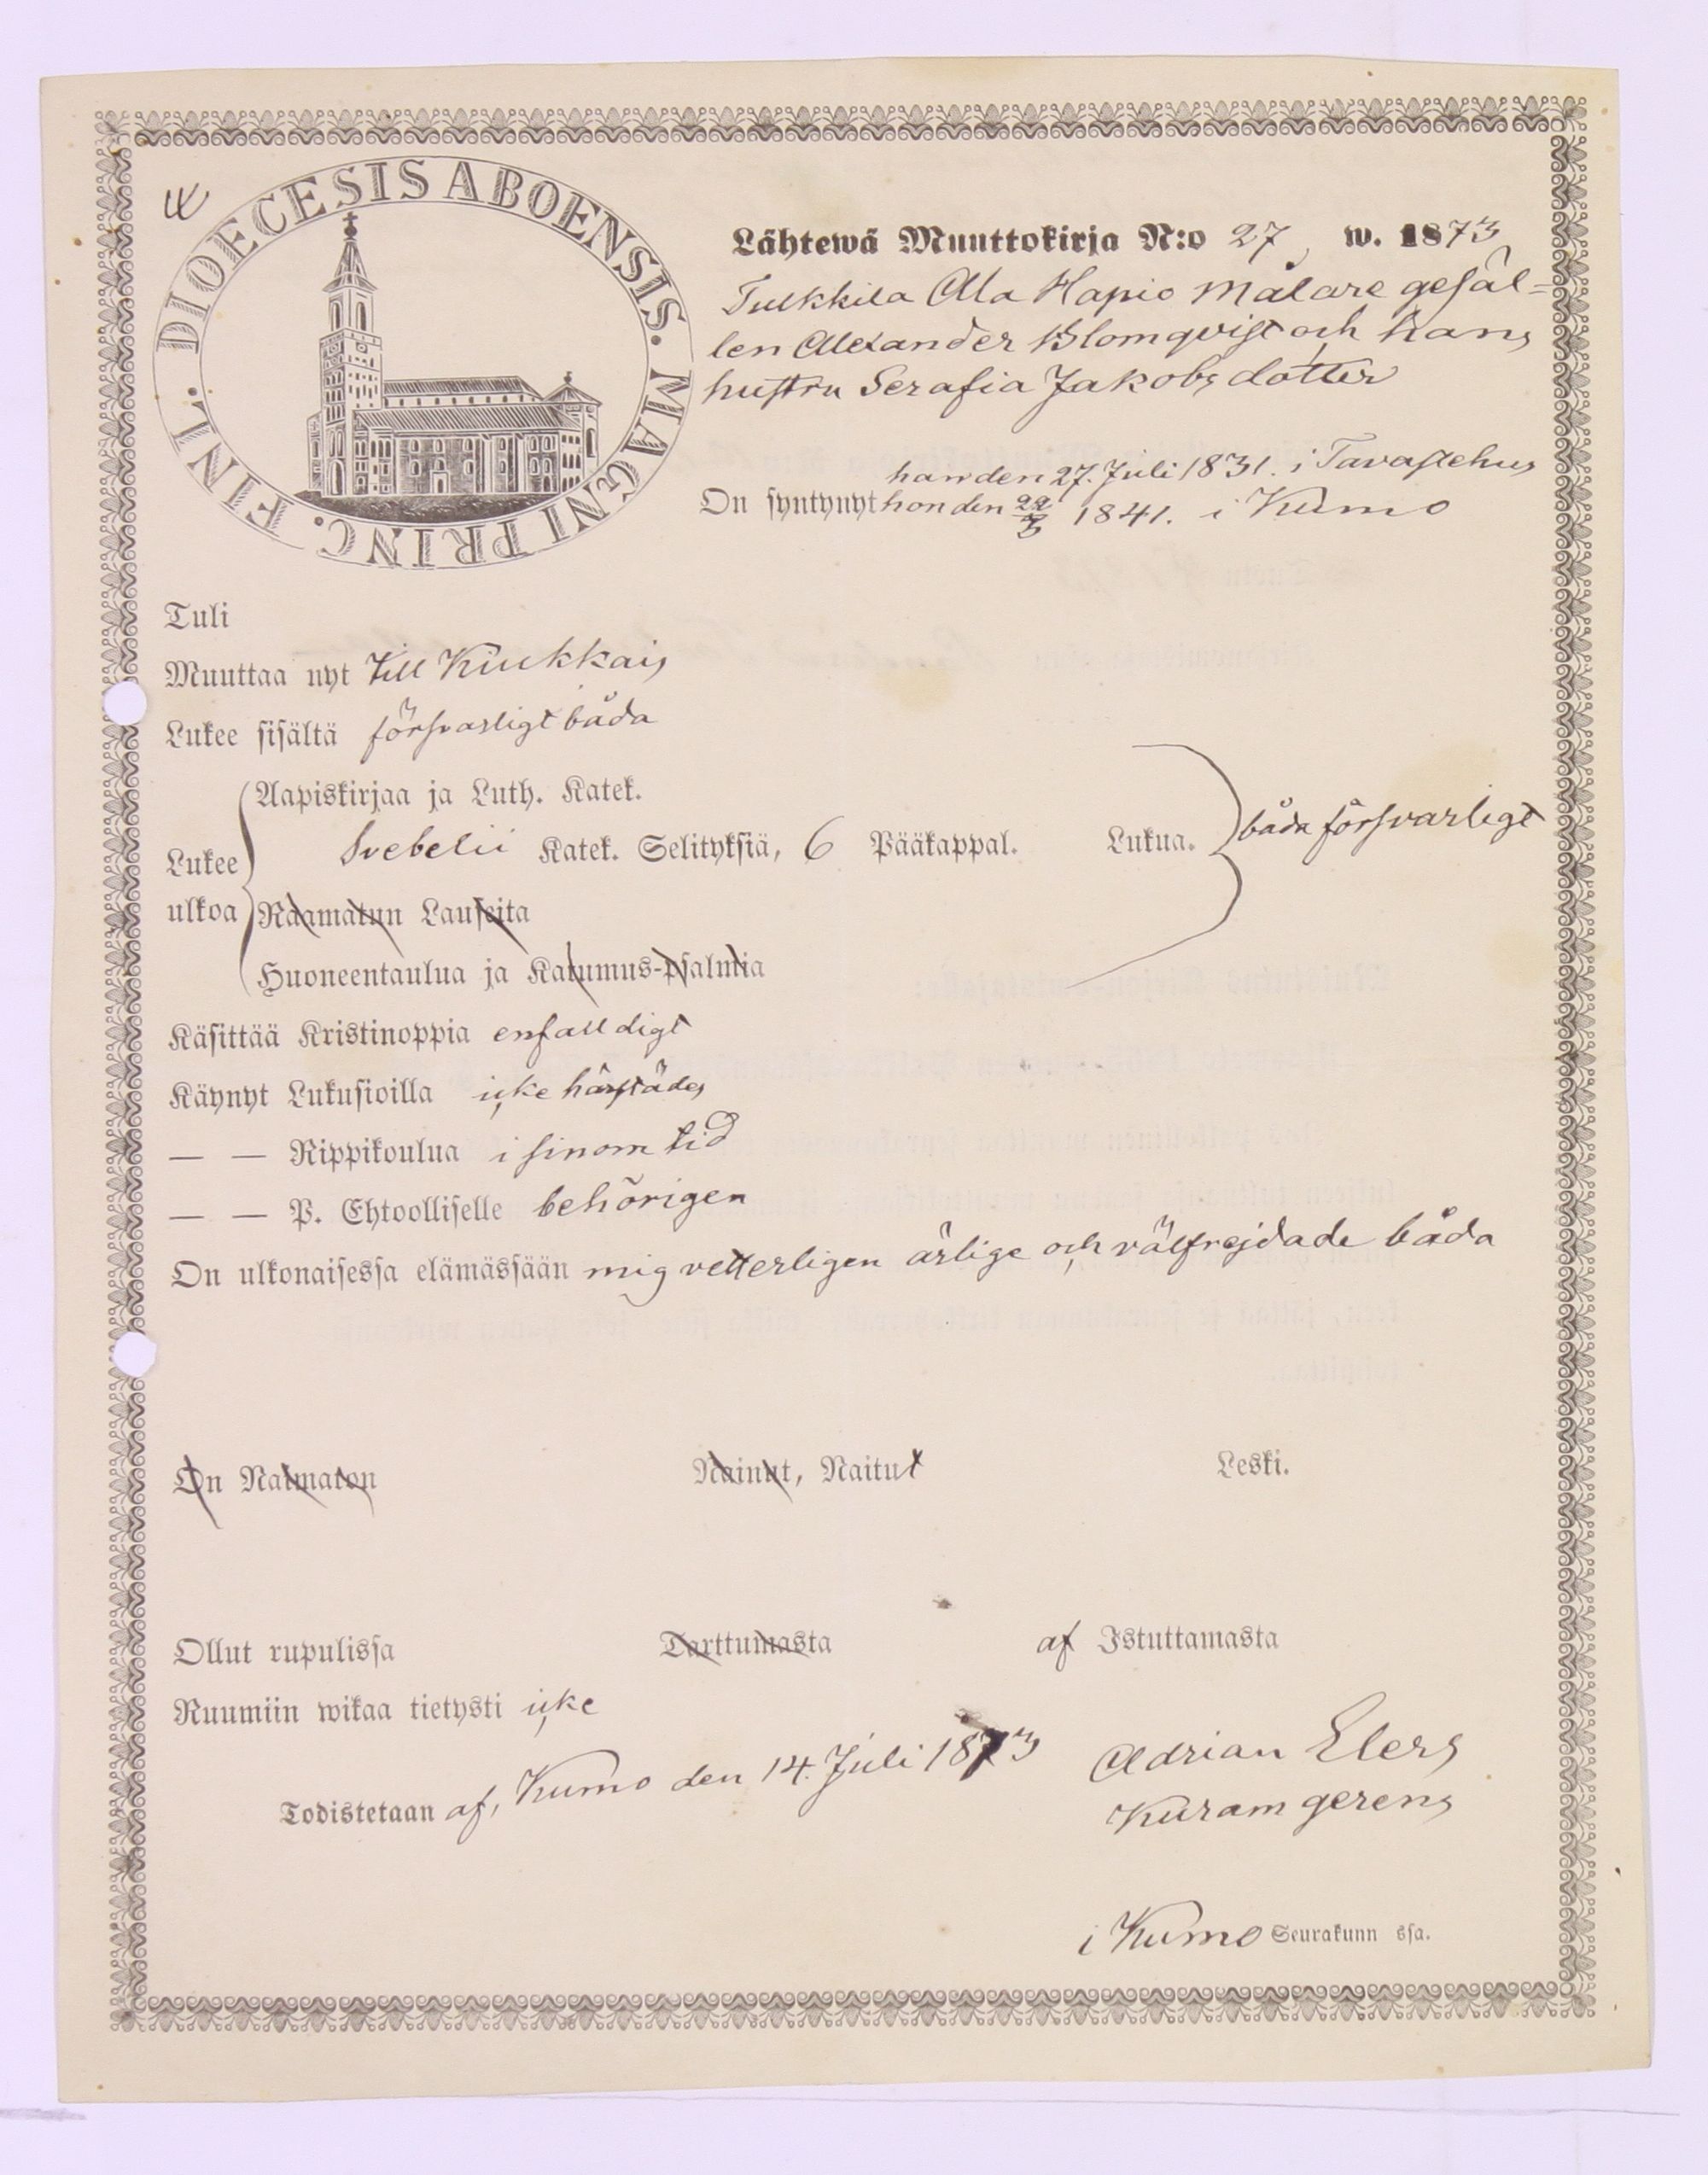 DIOECESIS ABOENSIS. MAGNI PRINC. FINL.
Lähtewä Muuttokirja N:o 27, w. 1873
Tulkkila Ala Hapio Målare gesäl=
len Alexander Blomqvist och hans
hustru Serafia Jakobsdotter
han den 27. Juli 1831. i Tavastehus
On syntynyt hon den 22/3 1841. i Kumo
Tuli
Muuttaa nyt till Kiukkais
Lukee sisältä försvarligt båda
Aapiskirjaa ja Luth. Katek.
Lukee Svebelii Katek. Selityksiä, 6 Pääkappal. Lukua. båda försvarligt
ulkoa Raamatun Lauseita
Huoneentaulua ja Katumus-psalmia
Käsittää Kristinoppia enfalldigt
Käynyt Lukusioilla icke härstädes
— — Rippikoulua i sinom tid
— — P. Ehtoolliselle behörigen
On ulkonaisessa elämässään mig vetterligen ärlige och välfrejdade båda
On Naimaton Nainut, Naitut Leski.
Ollut rupulissa Tarttumasta af Istuttamasta
Ruumiin wikaa tietysti icke
Todistetaan af, Kumo den 14. Juli 1873 Adrian Elers
Kuram gerens
i Kumo Seurakunn ssa.